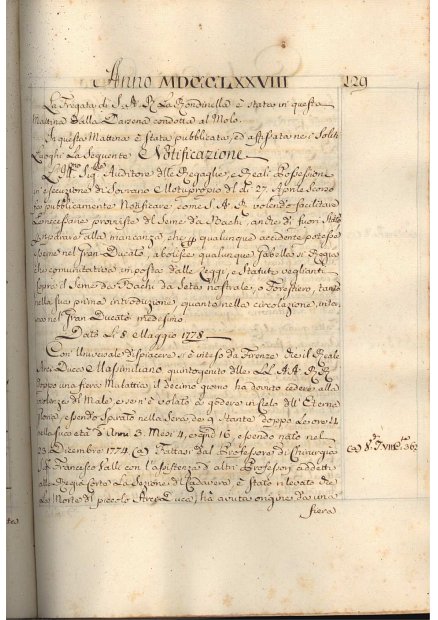 Anno MDCCLXXVIII 229
La Fregata di S. A. R. La Rondinella è stata in questa
Mattina dalla Darsena condotta al Molo.
In questa Mattina è stata pubblicata, ed affissa nei Soliti
Luoghi la Seguente Notificazione
L'Ill.mo Sig.re Auditore delle Regalie, e Reali Possessioni
in esecuzione di Sovrano Motuproprio del dì 27. Aprile
pubblicamente Notificare Come S. A. R. volendo facilitare
la necessaria provvista del Seme da Bachi, anche di fuori Stato
riparare alla mancanza, che per qualunque accidente potesse
nel Gran Ducato, abolisce qualunque Gabella sì Regia
che comunitativa imposta dalle Leggi, e Statuti veglianti
sopra il Seme da Bachi da Seta nostrale, o Forestiero, tanto
nella sua prima introduzione, quanto nella circolazione, inter
nel Gran Ducato medesimo.
Dato Li 8. Maggio 1778.
Con Universale dispiacere si è inteso da Firenze che il Reale
Arci Duca Massimiliano quintogenito delle LL. AA. RR.
doppo una fiera Malattia, il decimo giorno ha dovuto cedere alla
violenza del Male, e se n'è volato a godere in Cielo dell'Eterna
Gloria, essendo spirato nella Sera de 9. Stante doppo Le ore
nella sua età d'Anni 3. Mesi 4, e giorni 16 essendo nato nel
23. Dicembre 1774. (a) Fattasi dal Professore di Chirurgia
Sig.r Francesco Valli con l'assistenza d'altri Professori addetti
alla Regia Corte La Sezione del Cadavere è stato rilevato che
la Morte del piccolo Arci Duca, ha avuta origine da una
fiera
(a) 362